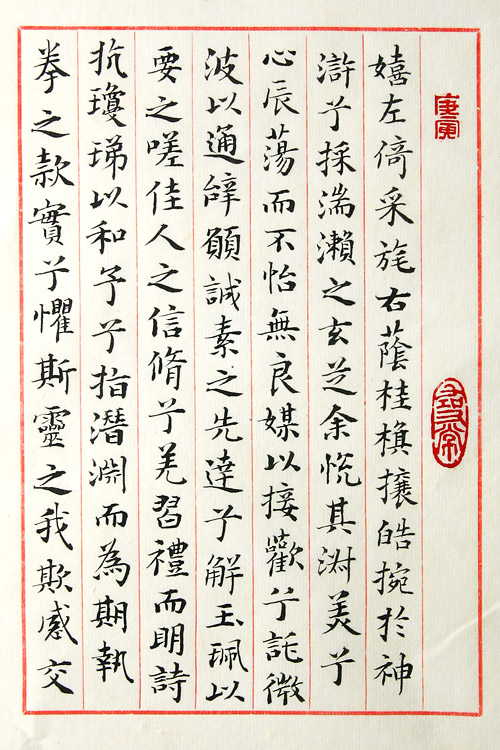 庚寅
尋常
嬉左倚采旄右蔭桂旗攘皓捥於神
滸兮採湍瀨之玄芝余悅其淑美兮
心辰蕩而不怡無良媒以接歡兮託微
波以通辭願誠素之先達兮解玉珮以
要之嗟佳人之信脩兮羌習禮而明詩
抗瓊珶以和予兮指潛淵而為期執
拳之款實兮懼斯靈之我欺感交